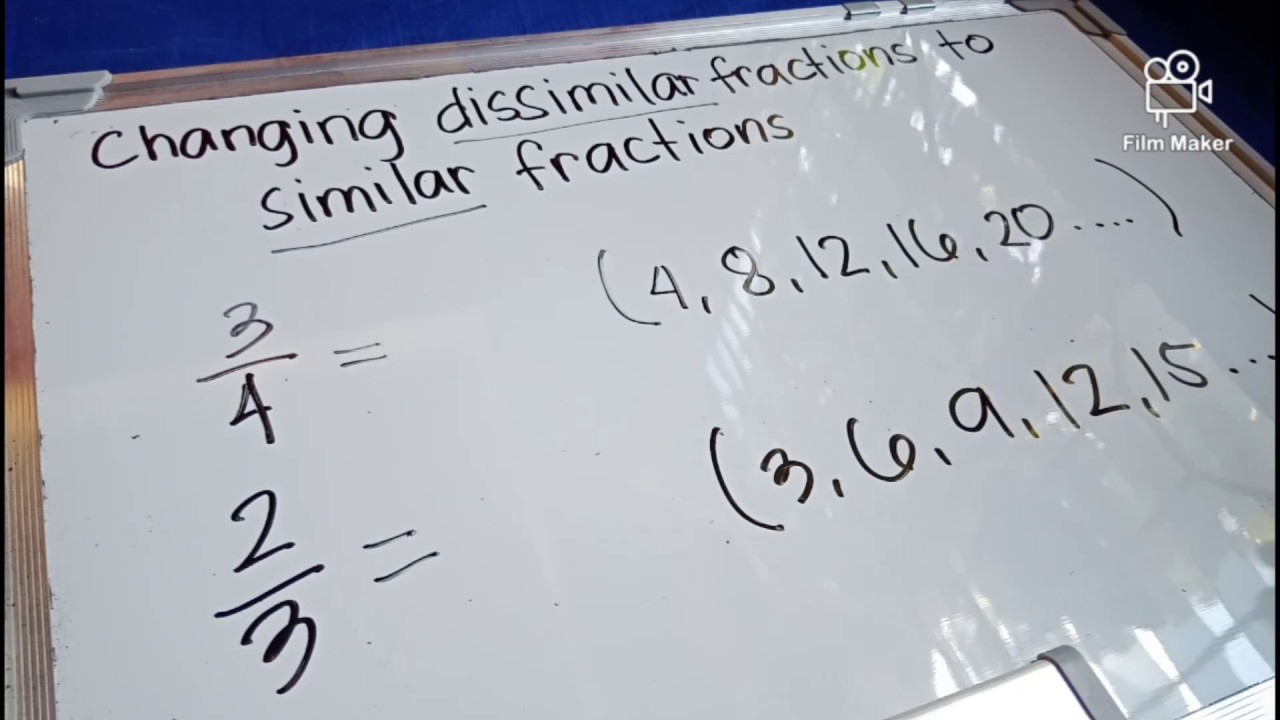 Changing dissimilar fractions to
similar fractions
Film Maker
3/4 = (4, 8, 12, 16, 20....)
2/3 = (3, 6, 9, 12, 15...)